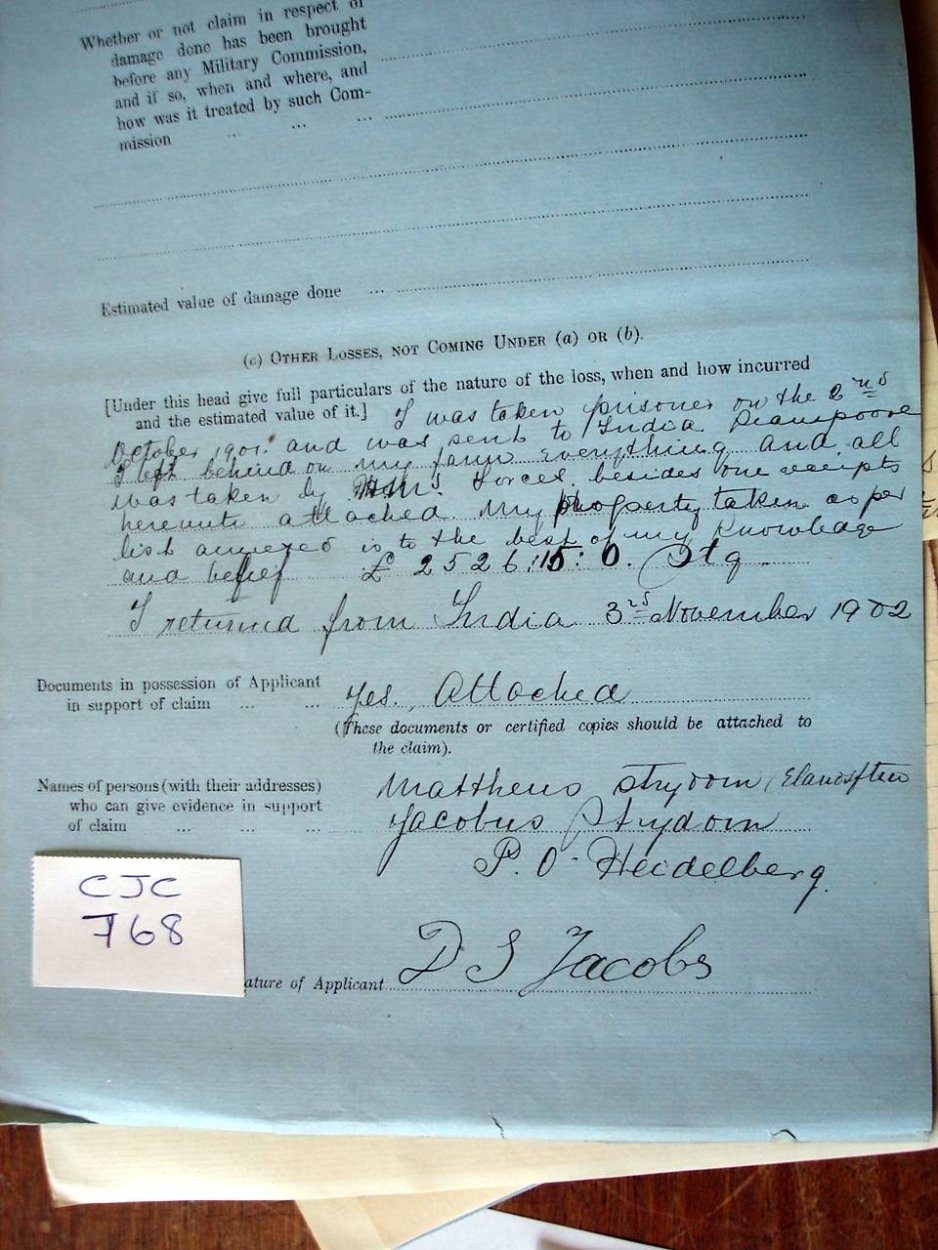 Whether or not claim in respect of
damage done has been brought
before any Military Commission,
and if so, when and where, and
how was it treated by such Com-
mission ... ... ...
Estimated value of damage done ...
(c) OTHER LOSSES, NOT COMING UNDER (a) OR (b).
[Under this head give full particulars of the nature of the loss, when and how incurred
and the estimated value of it.] I was taken prisoner on the 2nd
October 1901 and was sent to India
I left behind on my farm everything and all
was taken by H.M's Forces, besides one receipts
herewith attached. My property taken as per
list annexed is to the best of my knowledge
and belief £ 2526:15:0. Stg
I returned from India 3rd November 1902
Documents in possession of Applicant
in support of claim ... ...
Yes. Attached
(These documents or certified copies should be attached to
the claim).
Names of persons (with their addresses)
who can give evidence in support
of claim ... ... ...
Mattheus Strydom
Jacobus Strydom
P.O. Heidelberg.
CJC
768
ature of Applicant D S Jacobs